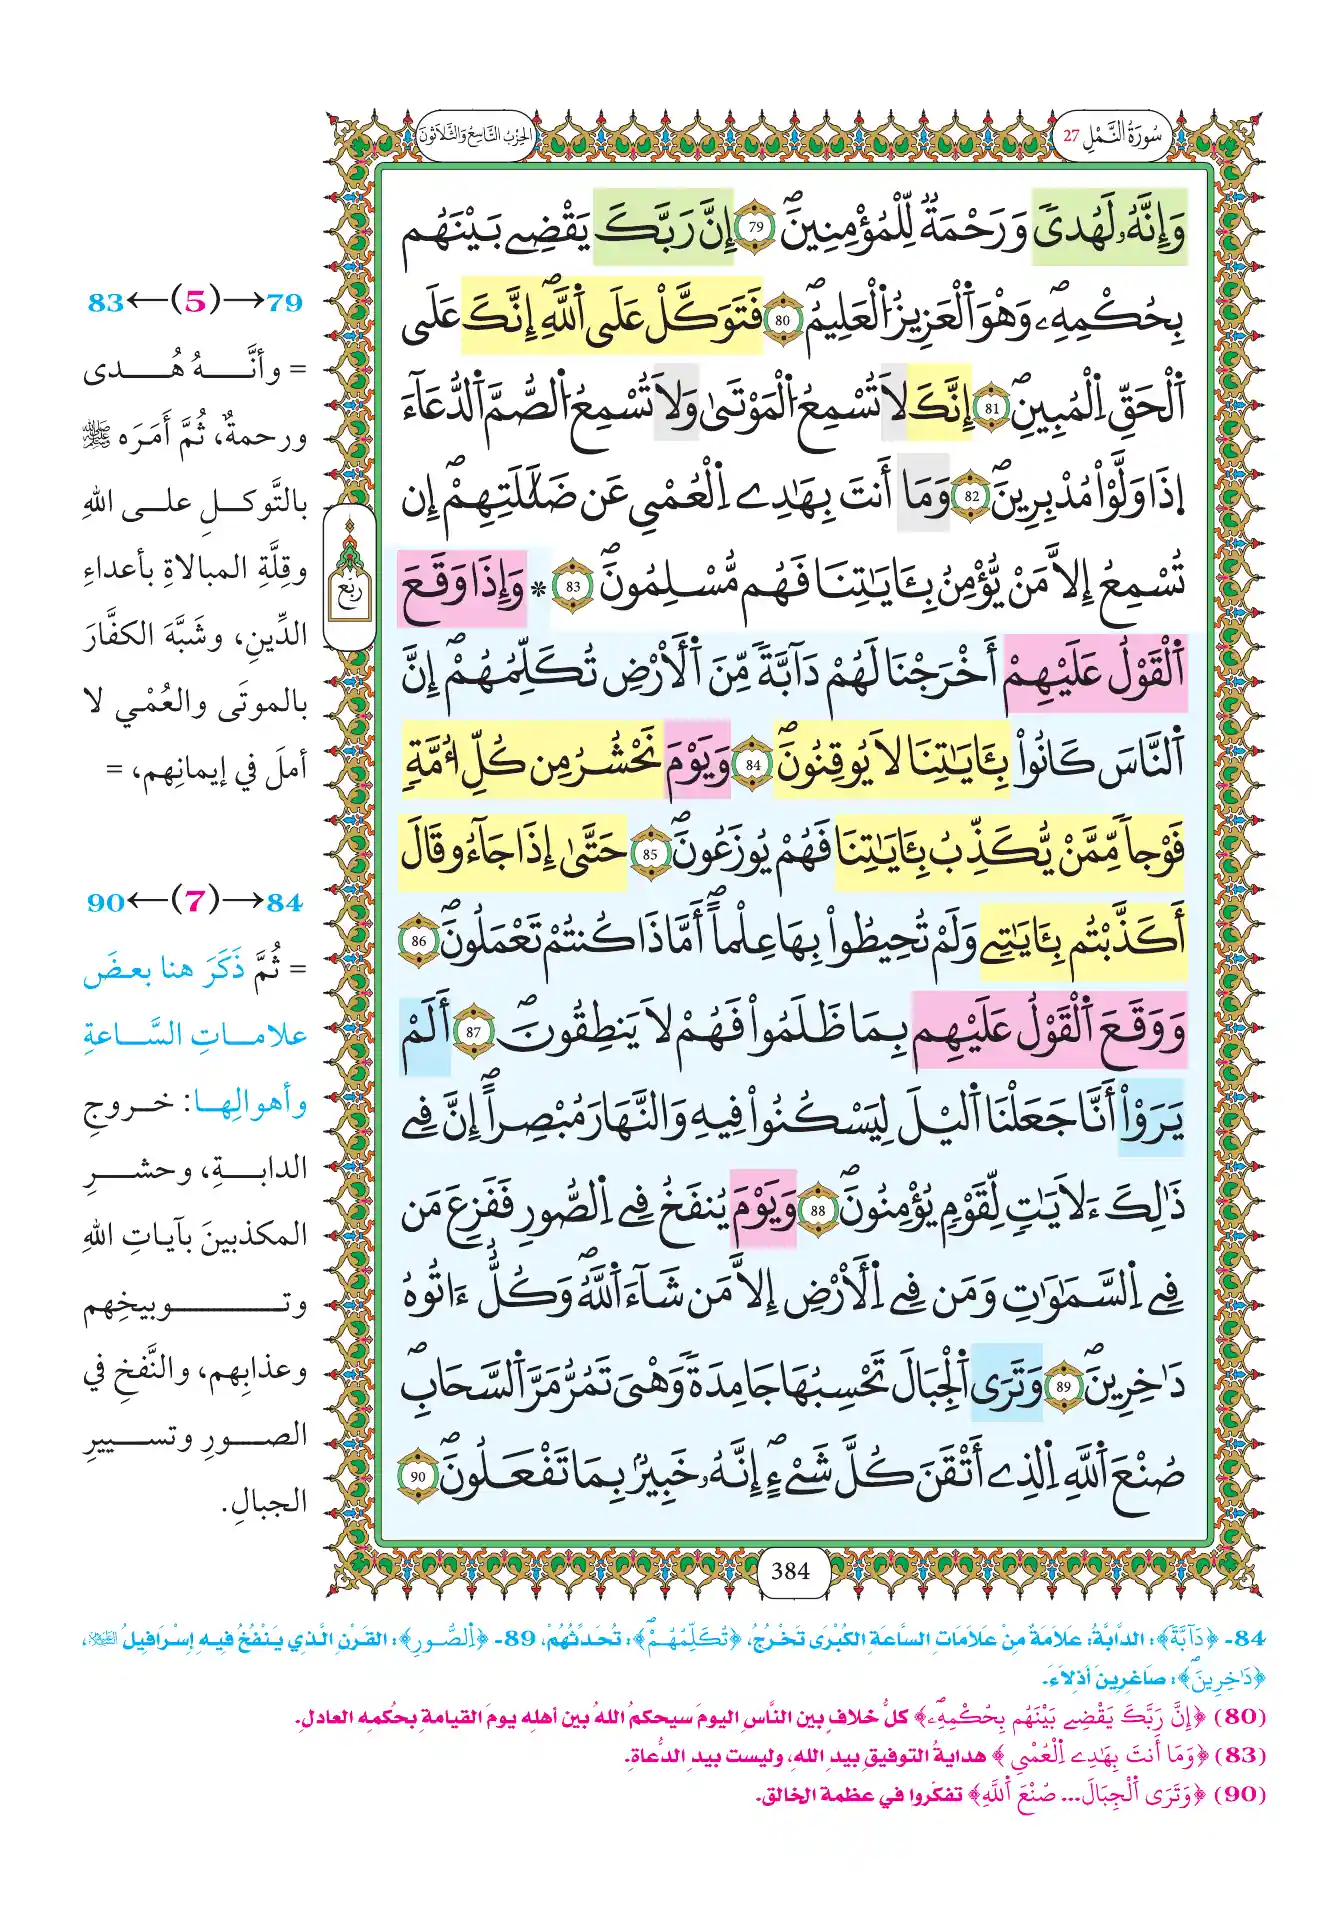 سُورَةُ النَّمْلِ 27
الحِزْبُ التَّاسِعُ وَالثَّلَاثُونَ
وَإِنَّهُۥ لَهُدىٗ وَرَحْمَةٞ لِّلْمُؤْمِنِينَۖ 79 إِنَّ رَبَّكَ يَقْضِے بَيْنَهُم
بِحُكْمِهِۦۖ وَهْوَ اَ۬لْعَزِيزُ اُ۬لْعَلِيمُۖ 80 فَتَوَكَّلْ عَلَي اَ۬للَّهِۖ إِنَّكَ عَلَي
اَ۬لْحَقِّ اِ۬لْمُبِينِۖ 81 إِنَّكَ لَا تُسْمِعُ اُ۬لْمَوْتَيٰ وَلَا تُسْمِعُ اُ۬لصُّمَّ اَ۬لدُّعَآءَ
اِ۪ذَا وَلَّوْاْ مُدْبِرِينَۖ 82 وَمَا أَنتَ بِهَٰدِے اِ۬لْعُمْيِ عَن ضَلَٰلَتِهِمْۖ إِن
تُسْمِعُ إِلَّا مَنْ يُّؤْمِنُ بِـَٔايَٰتِنَا فَهُم مُّسْلِمُونَۖ 83 * وَإِذَا وَقَعَ
اَ۬لْقَوْلُ عَلَيْهِمْ أَخْرَجْنَا لَهُمْ دَآبَّةٗ مِّنَ اَ۬لْأَرْضِ تُكَلِّمُهُمْۖ إِنَّ
اَ۬لنَّاسَ كَانُواْ بِـَٔايَٰتِنَا لَا يُوقِنُونَۖ 84 وَيَوْمَ نَحْشُرُ مِن كُلِّ أُمَّةٖ
فَوْجاٗ مِّمَّنْ يُّكَذِّبُ بِـَٔايَٰتِنَا فَهُمْ يُوزَعُونَۖ 85 حَتَّيٰ إِذَا جَآءُو قَالَ
أَكَذَّبْتُم بِـَٔايَٰتِے وَلَمْ تُحِيطُواْ بِهَا عِلْماًۖ أَمَّاذَا كُنتُمْ تَعْمَلُونَۖ 86
وَوَقَعَ اَ۬لْقَوْلُ عَلَيْهِم بِمَا ظَلَمُواْ فَهُمْ لَا يَنطِقُونَۖ 87 أَلَمْ
يَرَوْاْ أَنَّا جَعَلْنَا اَ۬ليْلَ لِيَسْكُنُواْ فِيهِ وَالنَّهَارَ مُبْصِراًۖ إِنَّ فِے
ذَٰلِكَ ءَلَايَٰتٖ لِّقَوْمٖ يُؤْمِنُونَۖ 88 وَيَوْمَ يُنفَخُ فِے اِ۬لصُّورِ فَفَزِعَ مَن
فِے اِ۬لسَّمَٰوَٰتِ وَمَن فِے اِ۬لْأَرْضِ إِلَّا مَن شَآءَ اَ۬للَّهُۖ وَكُلٌّ ءَاتُوهُ
دَٰخِرِينَۖ 89 وَتَرَي اَ۬لْجِبَالَ تَحْسِبُهَا جَامِدَةٗ وَهْيَ تَمُرُّ مَرَّ اَ۬لسَّحَابِۖ
صُنْعَ اَ۬للَّهِ اِ۬لذِے أَتْقَنَ كُلَّ شَےْءٍۖ إِنَّهُۥ خَبِيرُۢ بِمَا تَفْعَلُونَۖ 90
ربع
384
83←(5)→79
= وأنَّهُ هُدى
ورحمةٌ، ثُمَّ أَمَرَه ﷺ
بالتَّوكلِ على اللهِ
وقِلَّةِ المبالاةِ بأعداءِ
الدِّينِ، وشَبَّهَ الكفَّارَ
بالموتَى والعُمْي لا
أملَ في إيمانِهم، =
90←(7)→84
= ثُمَّ ذَكَرَ هنا بعضَ
علاماتِ السَّاعةِ
وأهوالِها: خروجِ
الدابةِ، وحشرِ
المكذبينَ بآياتِ اللهِ
وتوبيخِهم
وعذابِهم، والنَّفخِ في
الصورِ وتسييرِ
الجبالِ.
84- ﴿دَآبَّةٗ﴾: الدَّابَّةُ: عَلَامَةٌ مِنْ عَلَامَاتِ السَّاعَةِ الكُبْرَى تَخْرُجُ، ﴿تُكَلِّمُهُمْۖ﴾: تُحَدِّثُهُمْ، 89- ﴿اِ۬لصُّورِ﴾: القَرْنِ الَّذِي يَنْفُخُ فِيهِ إِسْرَافِيلُ عليه السلام،
﴿دَٰخِرِينَۖ﴾: صَاغِرِينَ أَذِلَّاءَ.
(80) ﴿إِنَّ رَبَّكَ يَقْضِے بَيْنَهُم بِحُكْمِهِۦۖ﴾ كلُّ خلافٍ بين النَّاسِ اليومَ سيحكمُ اللهُ بين أهلِه يومَ القيامةِ بحُكمِه العادلِ.
(83) ﴿وَمَا أَنتَ بِهَٰدِے اِ۬لْعُمْيِ﴾ هدايةُ التوفيقِ بيدِ اللهِ، وليست بيدِ الدُّعاةِ.
(90) ﴿وَتَرَي اَ۬لْجِبَالَ... صُنْعَ اَ۬للَّهِ﴾ تفكَّروا في عظمة الخالق.